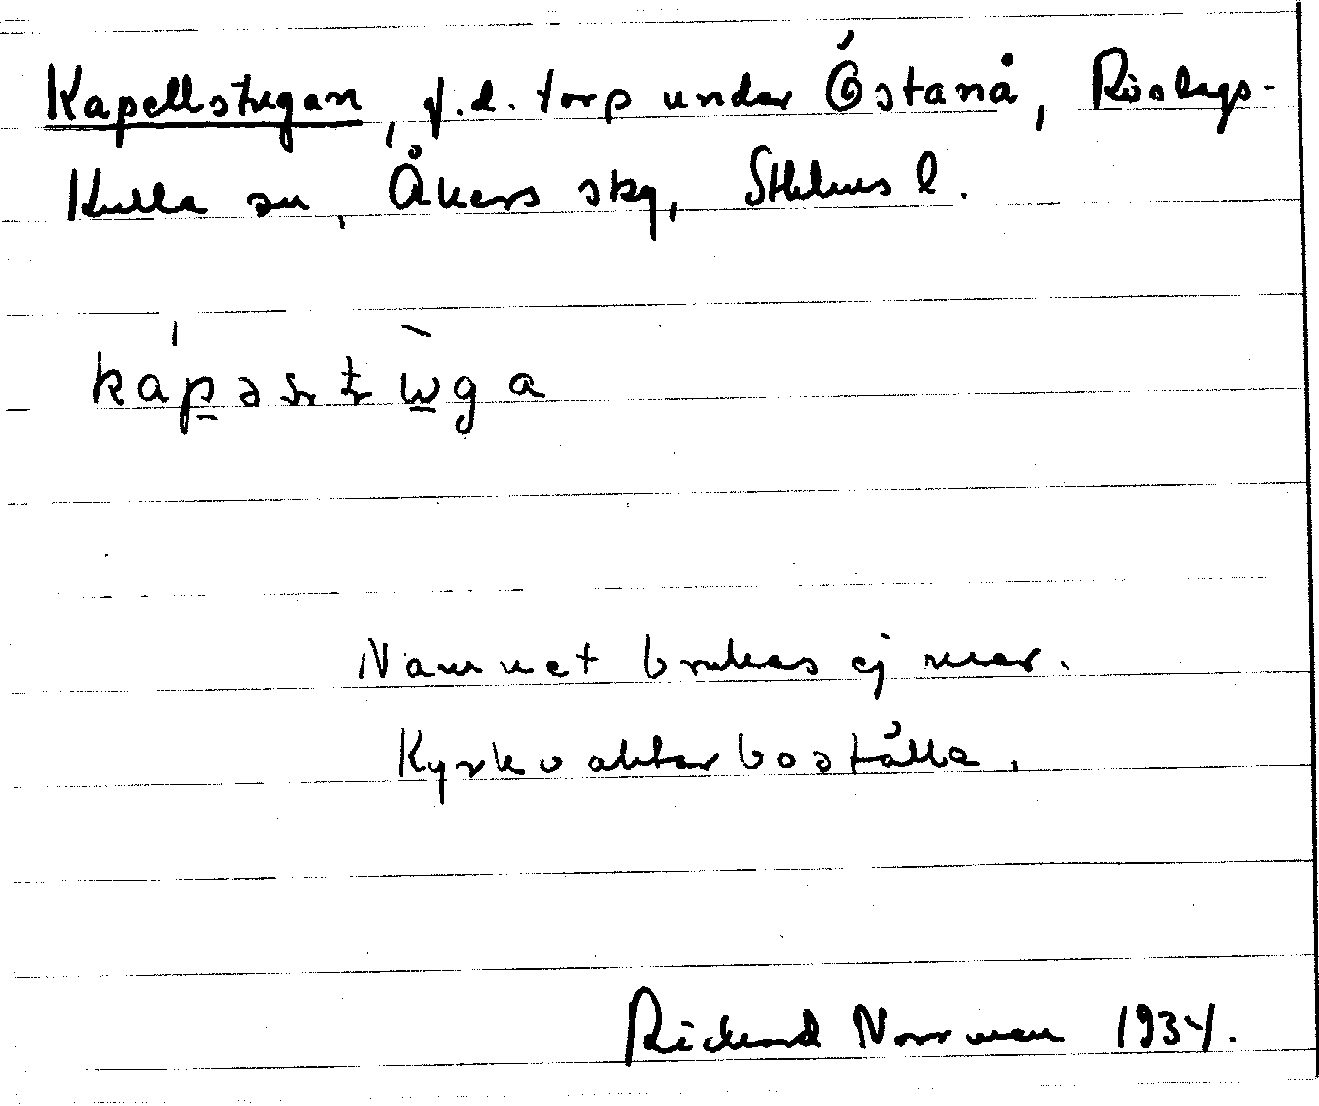 Kapellstugan, f.d. torp under Östanå, Röslags-
Kulla sn, Åkers skg, Sthlms l.
kápəstùga
Namnet brukas ej mer.
Kyrkvaktarboställe.
Rickard Norrman 1934.